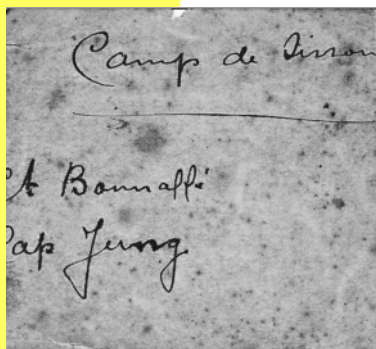 Camp de Sisson
Lt Bonnaffé
Cap Jung